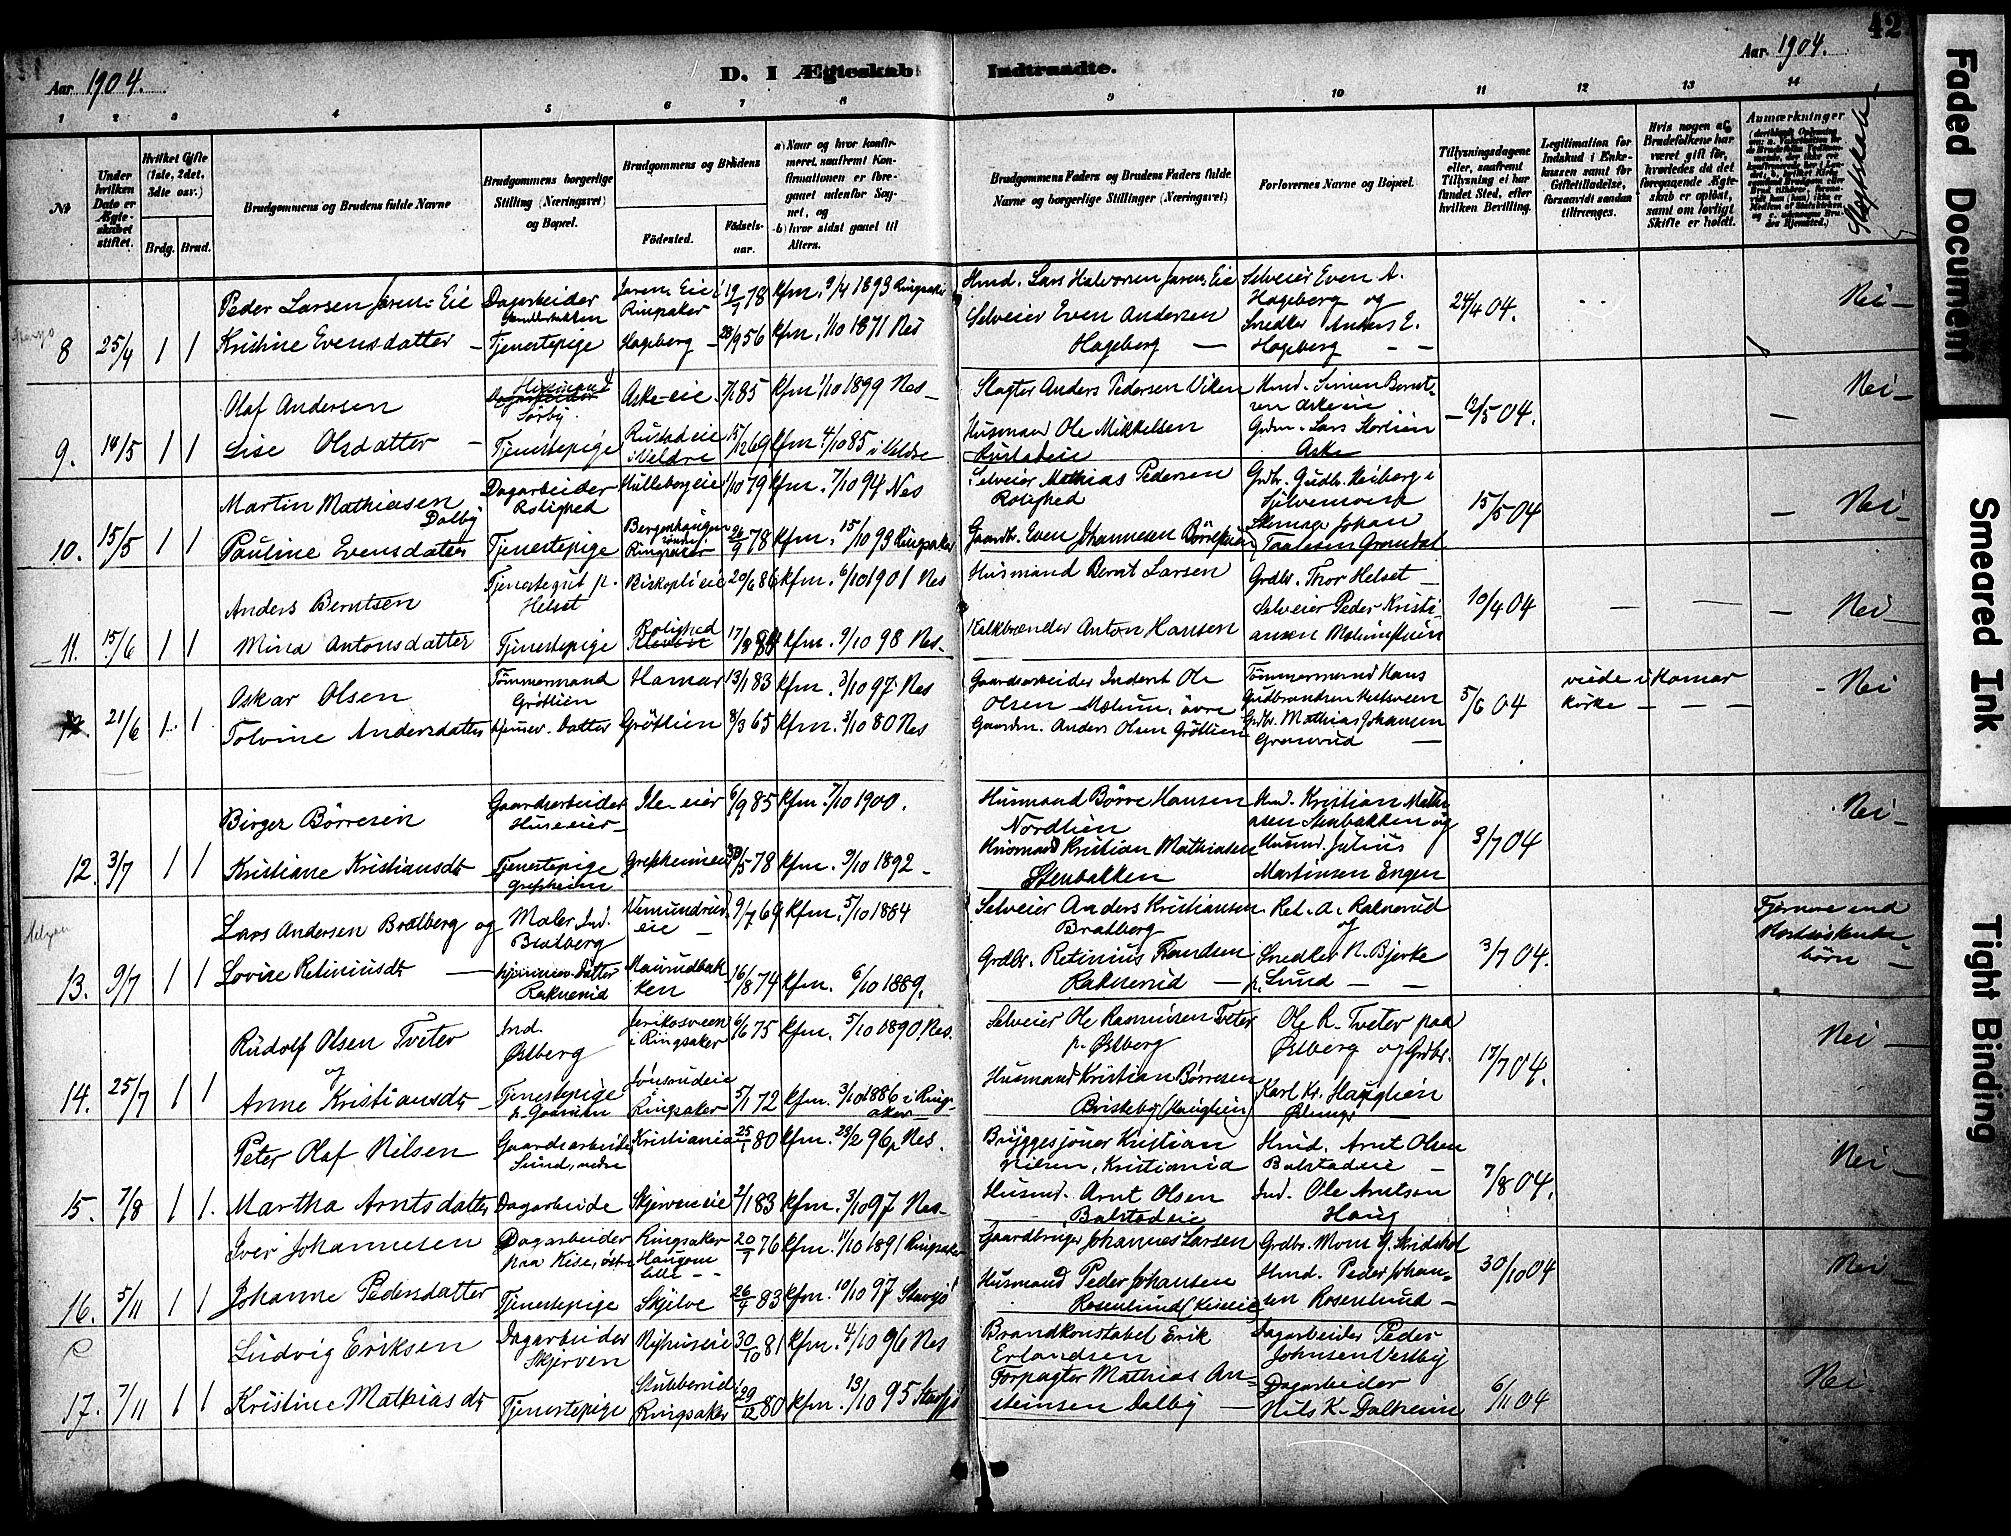 42
Aar 1904.
D. I Ægteskab Indtraadte.
Aar 1904.
1 2 3 4 5 6 7 8 9 10 11 12 13 14
№
Under hvilken Dato er Ægteskabet stiftet.
Hvilket Gifte (1ste, 2det, 3die osv.)
Brdg. Brud.
Brudgommens og Brudens fulde Navne
Brudgommens borgerlige Stilling (Næringsvei) og Bopæl.
Brudgommens og Brudens
Födested.
Födselsaar.
a) Naar og hvor konfirmeret, saafremt Konfirmationen er foregaaet udenfor Sognet, og
b) hvor sidst gaaet til Alters.
Brudgommens Faders og Brudens Faders fulde Navne og borgerlige Stillinger (Næringsvei)
Forlovernes Navne og Bopæl.
Tillysningsdagene eller, saafremt Tillysning ei har fundet Sted, efter hvilken Bevilling.
Legitimation for Indskud i Enkekassen samt for Giftetilladelse, forsaavidt saadan tiltrænges.
Hvis nogen af Brudefolkene har været gift før, hvorledes da det foregaaende Ægteskab er opløst, samt om lovligt Skifte er holdt.
Anmærkninger
Slægtskab
8 25/4 1 1
Peder Larsen Jaren-Eie Dagarbeider Jaren-Eie i Ringsaker 19/7 78 kfm. 9/4 1893 Ringsaker
Hmd. Lars Halvorsen Jaren-Eie Selveier Even A. Hageberg og 24/4 04. Nei -
Kristine Evensdatter - Tjenestepige Hageberg - 28/9 56 kfm. 1/10 1871 Nes
Selveier Even Andersen Hageberg - Snedker Anders E. Hageberg - -
9. 14/5 1 1
Olaf Andersen Husmand Sørby. Aske-eie 7/1 85 kfm 1/10 1899 Nes -
Slagter Anders Pedersen Viken Hmd. Simen Berntsen Askeeie - 12/5 04. - Nei -
Lise Olsdatter - Tjenestepige Rustadeie i Veldre 15/12 69 kfm 4/10 85 i Veldre
Husmand Ole Mikkelsen Rustadeie Grdm. Lars Stortien Aske
10. 15/5 1 1
Martin Mathiasen Dalby Dagarbeider Rolighed Hulleborgeie 1/10 79 kfm. 7/10 94 Nes
Selveier Mathias Pedersen Rolighed Grdbr. Gudbr. Heiberg i 15/5 04 - Nei -
Pauline Evensdatter Tjenestepige Bergenhaugen Ringsaker 26/9 78 kfm. 15/10 93 Ringsaker
Gaardbr. Even Johannesen Skomager Johan
11. 15/6 1 1
Anders Berntsen Tjenestegut p. Helset Biskoplieie 20/6 86 kfm. 6/10 1901 Nes
Husmand Bernt Larsen Grdbr. Thor Helset - 10/4 04 - - - Nei -
Mina Antonsdatter Tjenestepige Rolighed 17/3 84 kfm. 9/10 98 Nes -
Kalkbrænder Anton Hansen Selveier Peder Kristiansen Mælumstuen
12 21/6 1 1
Oskar Olsen Tømmermand Grøtlien Hamar 13/1 83 kfm. 3/10 97 Nes
Gaardsarbeider Inderst Ole Olsen Mælum, øvre Tømmermand Hans Gudbrandsen 5/6 04 viede i Hamar kirke - - - - Nei
Tolvine Andersdatter hjemmev. Datter Grøtlien 8/3 65 kfm. 3/10 80 Nes
Gaardm. Anders Olsen Grøtlien Grdbr. Mathias Johansen Granerud -
12. 3/7 1 1
Birger Børresen Gaardsarbeider Huseeier - Ile-eier 6/9 85 kfm. 7/10 1900.
Husmand Børre Hansen Nordlien Hmd. Kristian Mathiasen Stenbakken og 3/7 04 Nei -
Kristiane Kristiansdt Tjenestepige Grefsheim Grefsheimeie 30/5 78 kfm. 9/10 1892 -
Husmand Kristian Mathiasen Stenbakken Husmd. Julius Martinsen Engen
13. 9/7 1 1
Lars Andersen Bratberg og Maler Ind. Bratberg Nemundrudeie - 9/7 69 kfm. 5/10 1884
Selveier Anders Kristiansen Bratberg Ret. A. Raknerud og 3/7 04. Fjernere end Søskendebørn -
Lovise Retiniusdt - hjemmev. Datter Raknerud Maurudbakken 16/8 74 kfm. 6/10 1889.
Grdbr. Retinius Raknerud - Snedker N. Bjerke p. Lund - -
14. 25/7 1 1
Rudolf Olsen Tveter og Ind. Østberg Jerikosveen i Ringsaker 6/6 75 kfm. 5/10 1890 Nes.
Selveier Ole Rasmusen Tveter p. Østberg Ole R. Tveter paa Østberg og Grdbr. 17/7 04. Nei -
Anne Kristiansdt - Tjenestepige Ringsaker 5/1 72 kfm. 3/10 1886 i Ringsaker
Husmand Kristian Børresen Briskeby (Hauglien) Karl Kr. Hauglien -
15. 7/8 1 1.
Peter Olaf Nilsen Gaardsarbeider Lund, nedre Kristiania 25/1 80 kfm. 23/2 96 p. Nes.
Bryggesjouer Kristian Nilsen, Kristiania Hmd. Arnt Olsen Balstadeie - 7/8 04. Nei -
Martha Arntsdatter Dagarbeide Skjerveneie 2/1 83 kfm. 3/10 97 Nes -
Husmd. Arnt Olsen Balstadeie Ind. Ole Arntsen Haug
16. 5/11 1 1
Iver Johannesen Dagarbeider paa Kise, østre Ringsaker Haugom lille - - 20/7 76 kfm. 11/10 1891 Ringsaker
Gaardbruger Johannes Larsen Grdbr. Mons G. Skredshol 30/10 04 Nei -
Johanne Pedersdatter Tjenestepige Skjelve 26/4 83 kfm. 10/10 97 Stavsjø
Husmand Peder Johansen Rosenlund (Kiseeie) Hmd. Peder Johansen Rosenlund -
17. 7/11 1 1
Ludvig Eriksen Dagarbeider Skjerven Nyhuseie 30/10 81 kfm. 4/10 96 Nes
Brandkonstabel Erik Erlandsen Dagarbeider Peder Johnsen Vestby 6/11 04 Nei -
Kristine Mathiasdt Tjenestepige Stubberud Ringsaker 29/12 80 kfm. 13/10 95 Stavsjø
Forpagter Mathias Arnsteinsen Dalby - Dagarbeider Nils K. Dalheim
Faded Document
Smeared Ink
Tight Binding